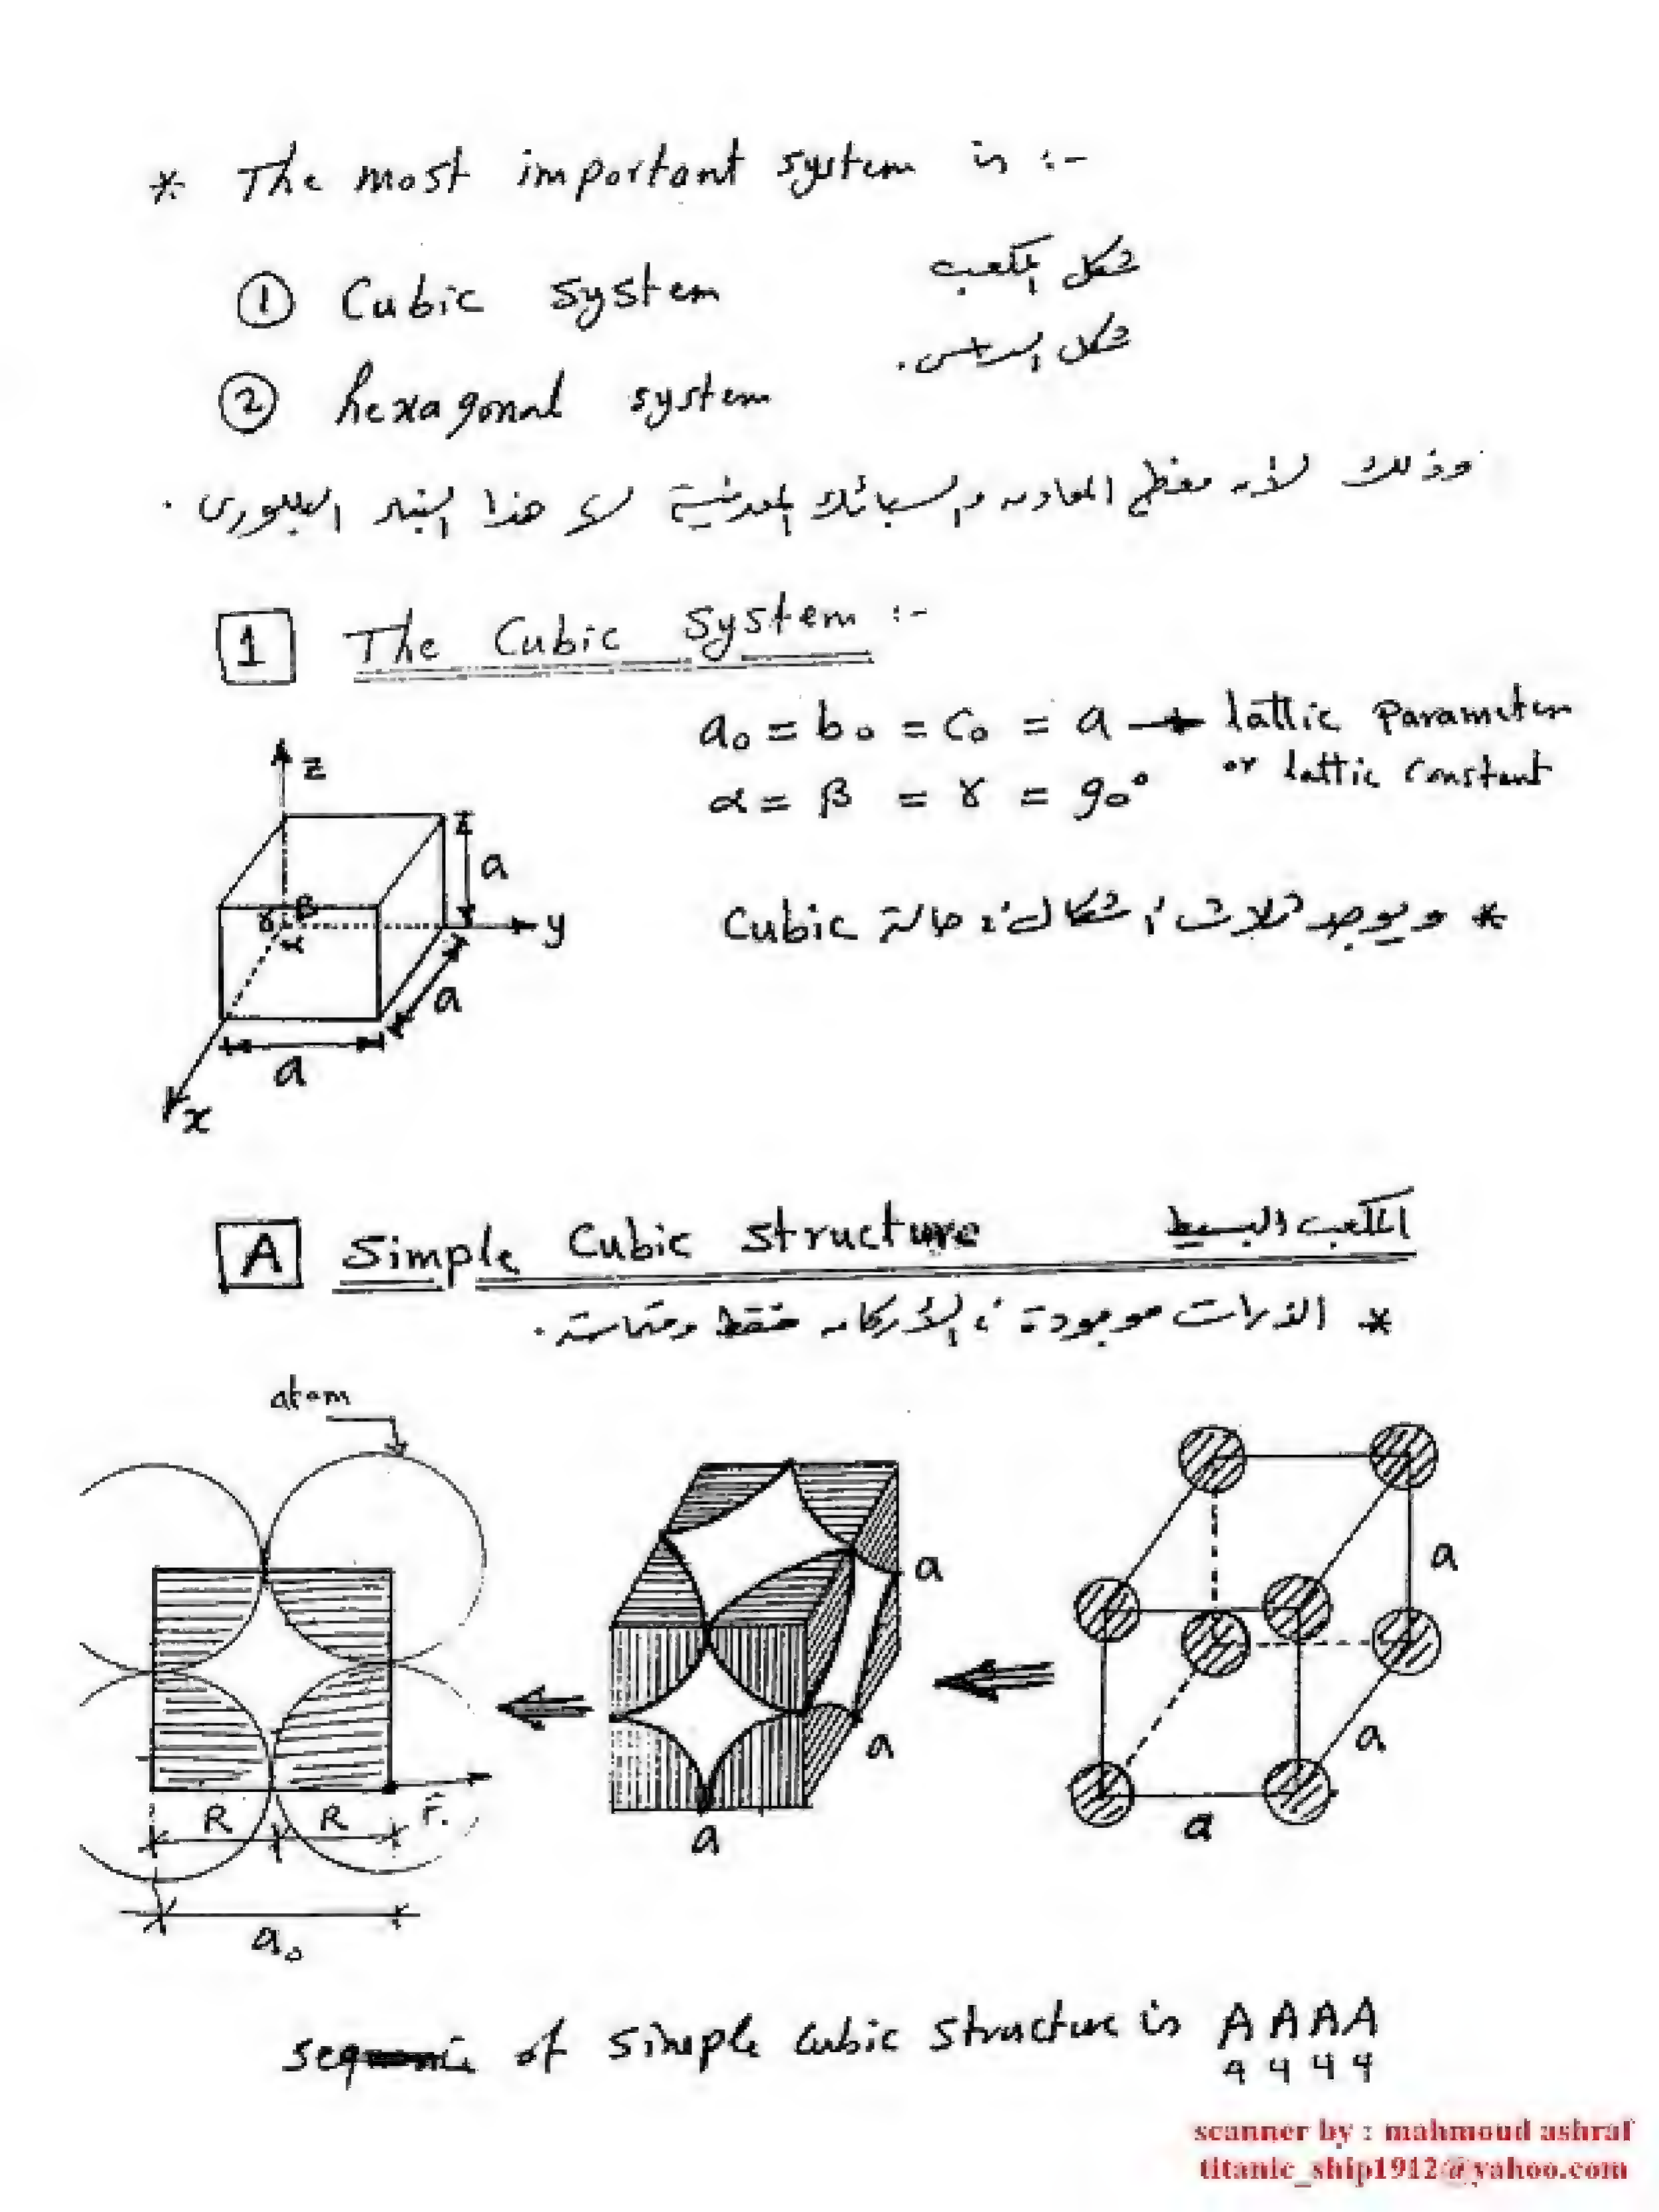 * The most important system is :-
① Cubic system شكل المكعب
② hexagonal system شكل المسدس.
وذلك لأن معظم المعادن والسبائك المعدنية لها هذا البناء البللورى .
1 The Cubic System :-
a₀ = b₀ = c₀ = a → lattic parameter
or lattic constant
α = β = γ = 90°
z
a
γ β
α
y
a
a
x
* ويوجد ثلاث أشكال فى حالة Cubic
A Simple Cubic structure المكعب البسيط
* الذرات موجودة فى الأركان فقط ومتماسة .
atom
a
a
a
a
R R r.
a
a
a₀
of simple cubic structure is A A A A
4 4 4 4
scanner by : mahmoud ashraf
titanic_ship1912@yahoo.com